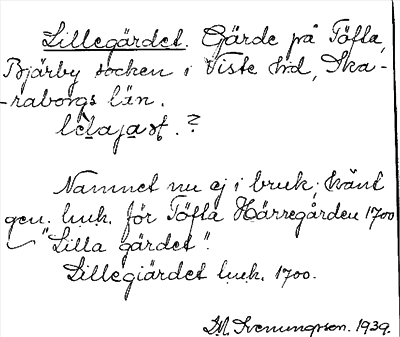 Lillegärdet. Gärde på Töfta,
Bjärby socken i Viste hd, Ska-
-raborgs län.
Namnet nu ej i bruk; känt
gen. luk. för Töfta Härregården 1700
"Lilla gärdet".
Lillegiärdet luk. 1700.
1939.